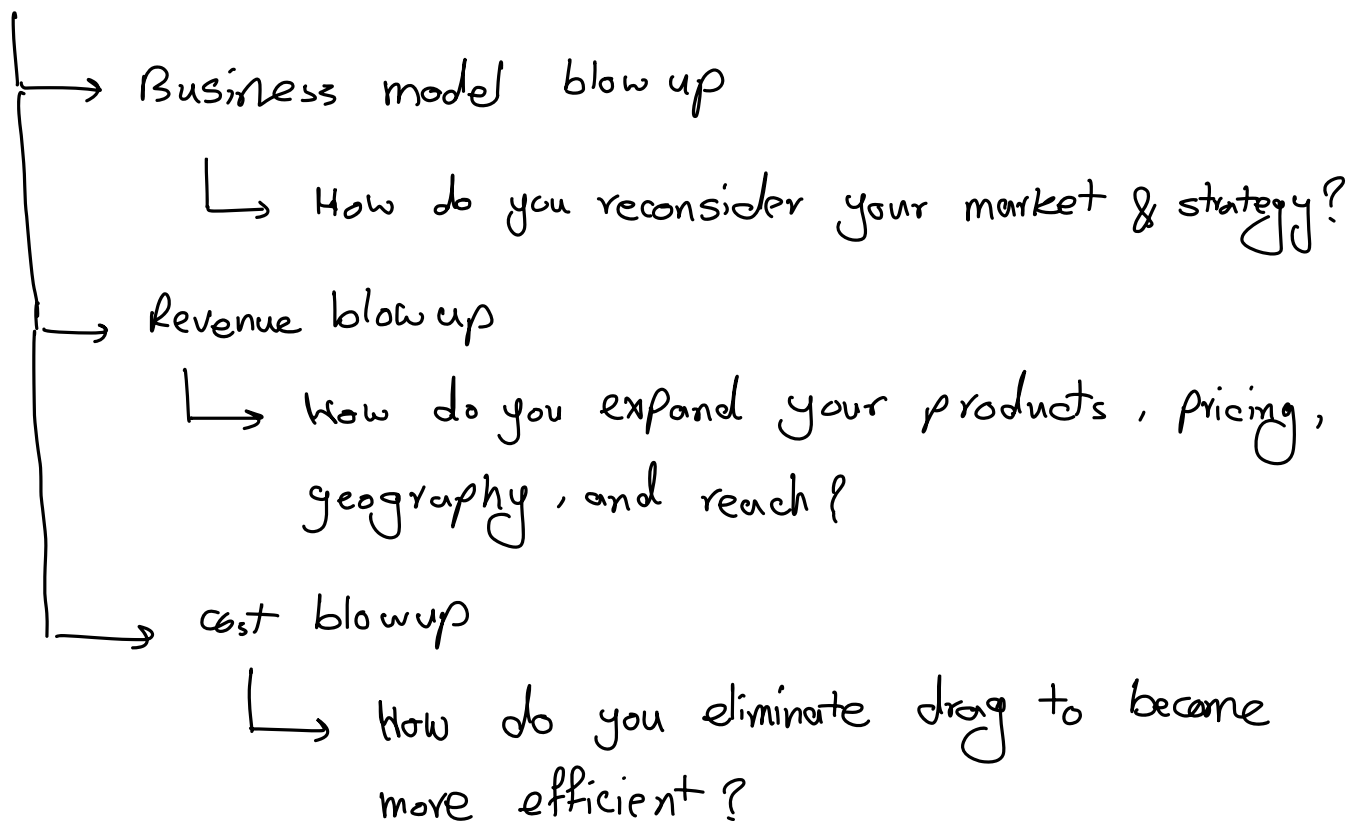 Business model blow up
How do you reconsider your market & strategy?
Revenue blow up
How do you expand your products, pricing,
geography, and reach?
cost blowup
How do you eliminate drag to become
more efficient?